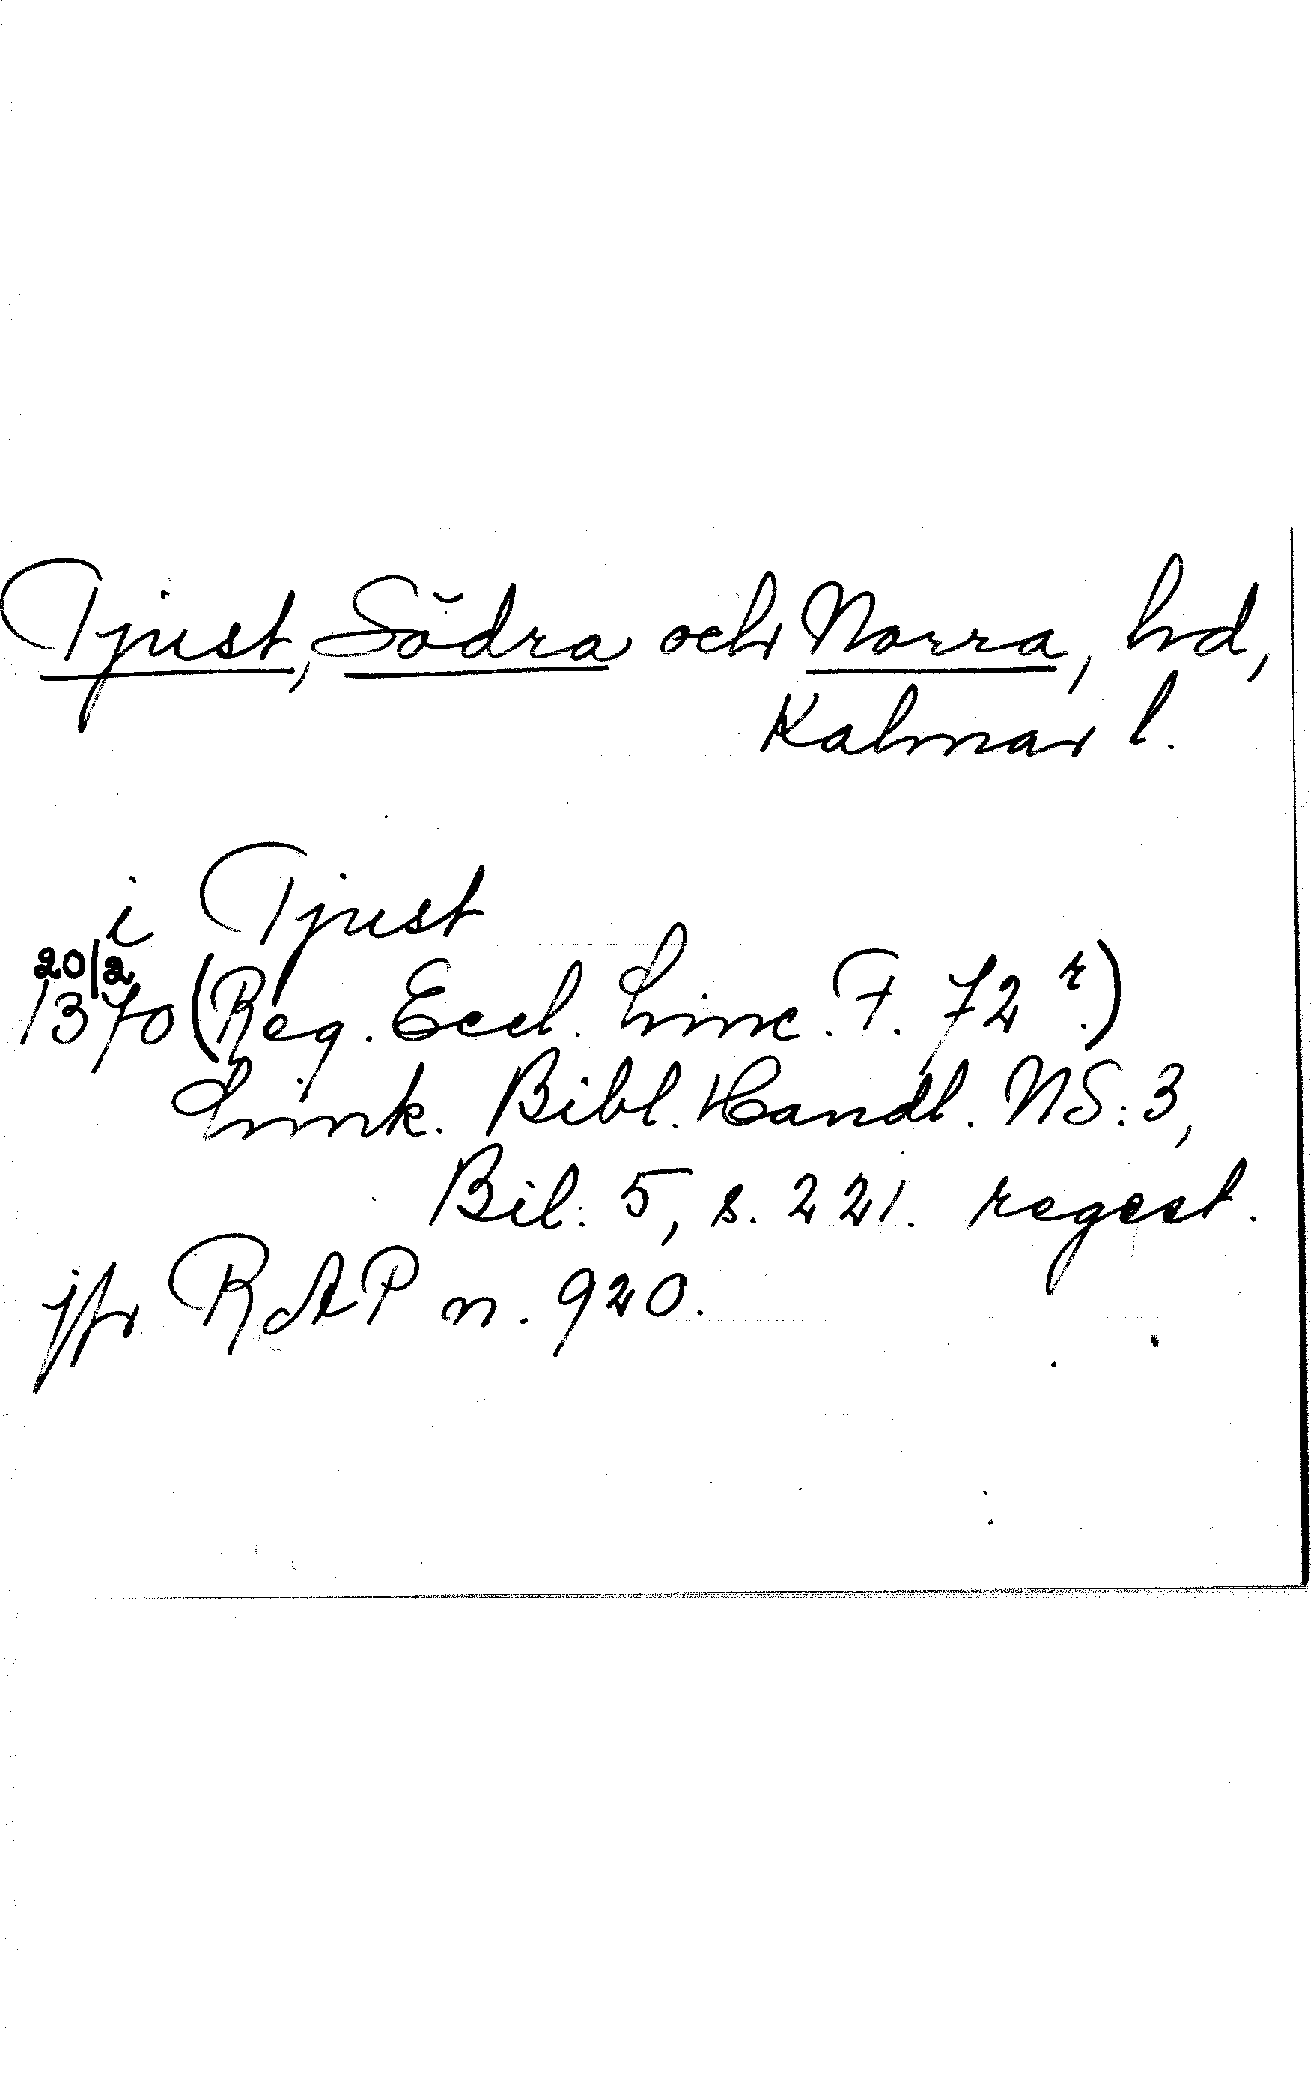 Tjust, Södra och Norra, hd,
Kalmar l.
i Tjust
20/2
1370 (Reg. Eccl. Linc. F. 72 r.)
Link. Bibl. Handl. NS: 3,
Bil. 5, s. 221. regest.
jfr RAP n. 920.